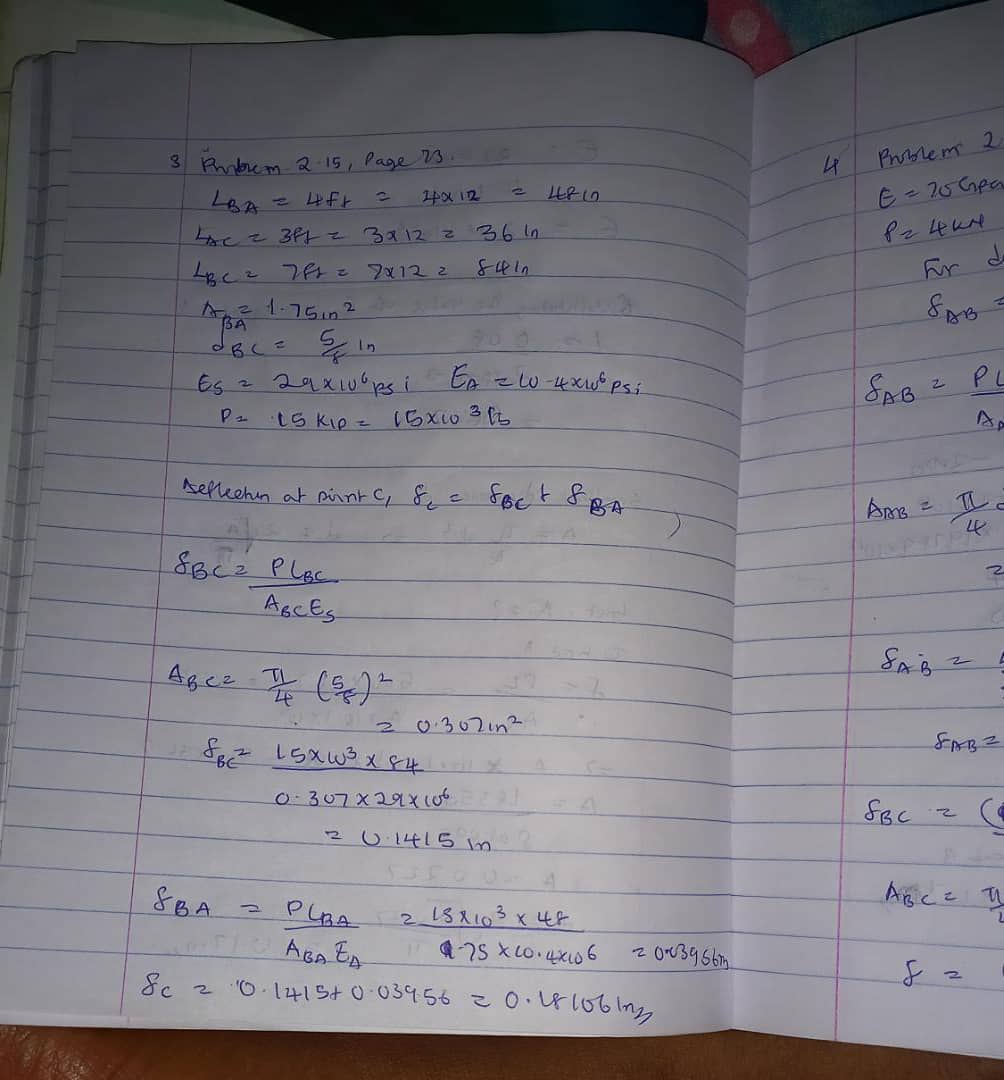 3 Problem 2.15, Page 73.
L_BA = 4ft = 4x12 = 48in
L_AC = 3ft = 3x12 = 36in
L_BC = 7ft = 7x12 = 84in
A_BA = 1.75in²
d_BC = 5/8 in
E_S = 29x10⁶psi E_A = 10.4x10⁶psi
P = 15 Kip = 15x10³ lb
Deflection at point C, δ_C = δ_BC + δ_BA
δ_BC = PL_BC
A_BC E_S
A_BC = π/4 (5/8)²
= 0.307in²
δ_BC = 15x10³ x 84
0.307x29x10⁶
= 0.1415 in
δ_BA = PL_BA = 15x10³ x 48
A_BA E_A 1.75 x 10.4x10⁶ = 0.03956in
δ_C = 0.1415+0.03956 = 0.18106in
4 Problem 2
E = 70Gpa
P = 4kN
For
δ_AB =
δ_AB = PL
A_AB = π/4
=
δ_AB =
δ_AB =
δ_BC = (
A_BC = π
δ =